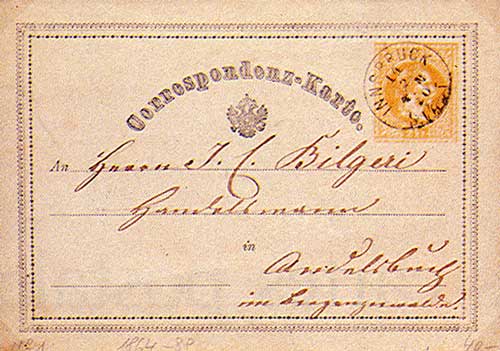 Correspondenz-Karte.
INNSBRUCK
An Herrn J. C. Bilgeri
Handelsmann
in
Andelsbuch
im Bregenzerwalde.
40-